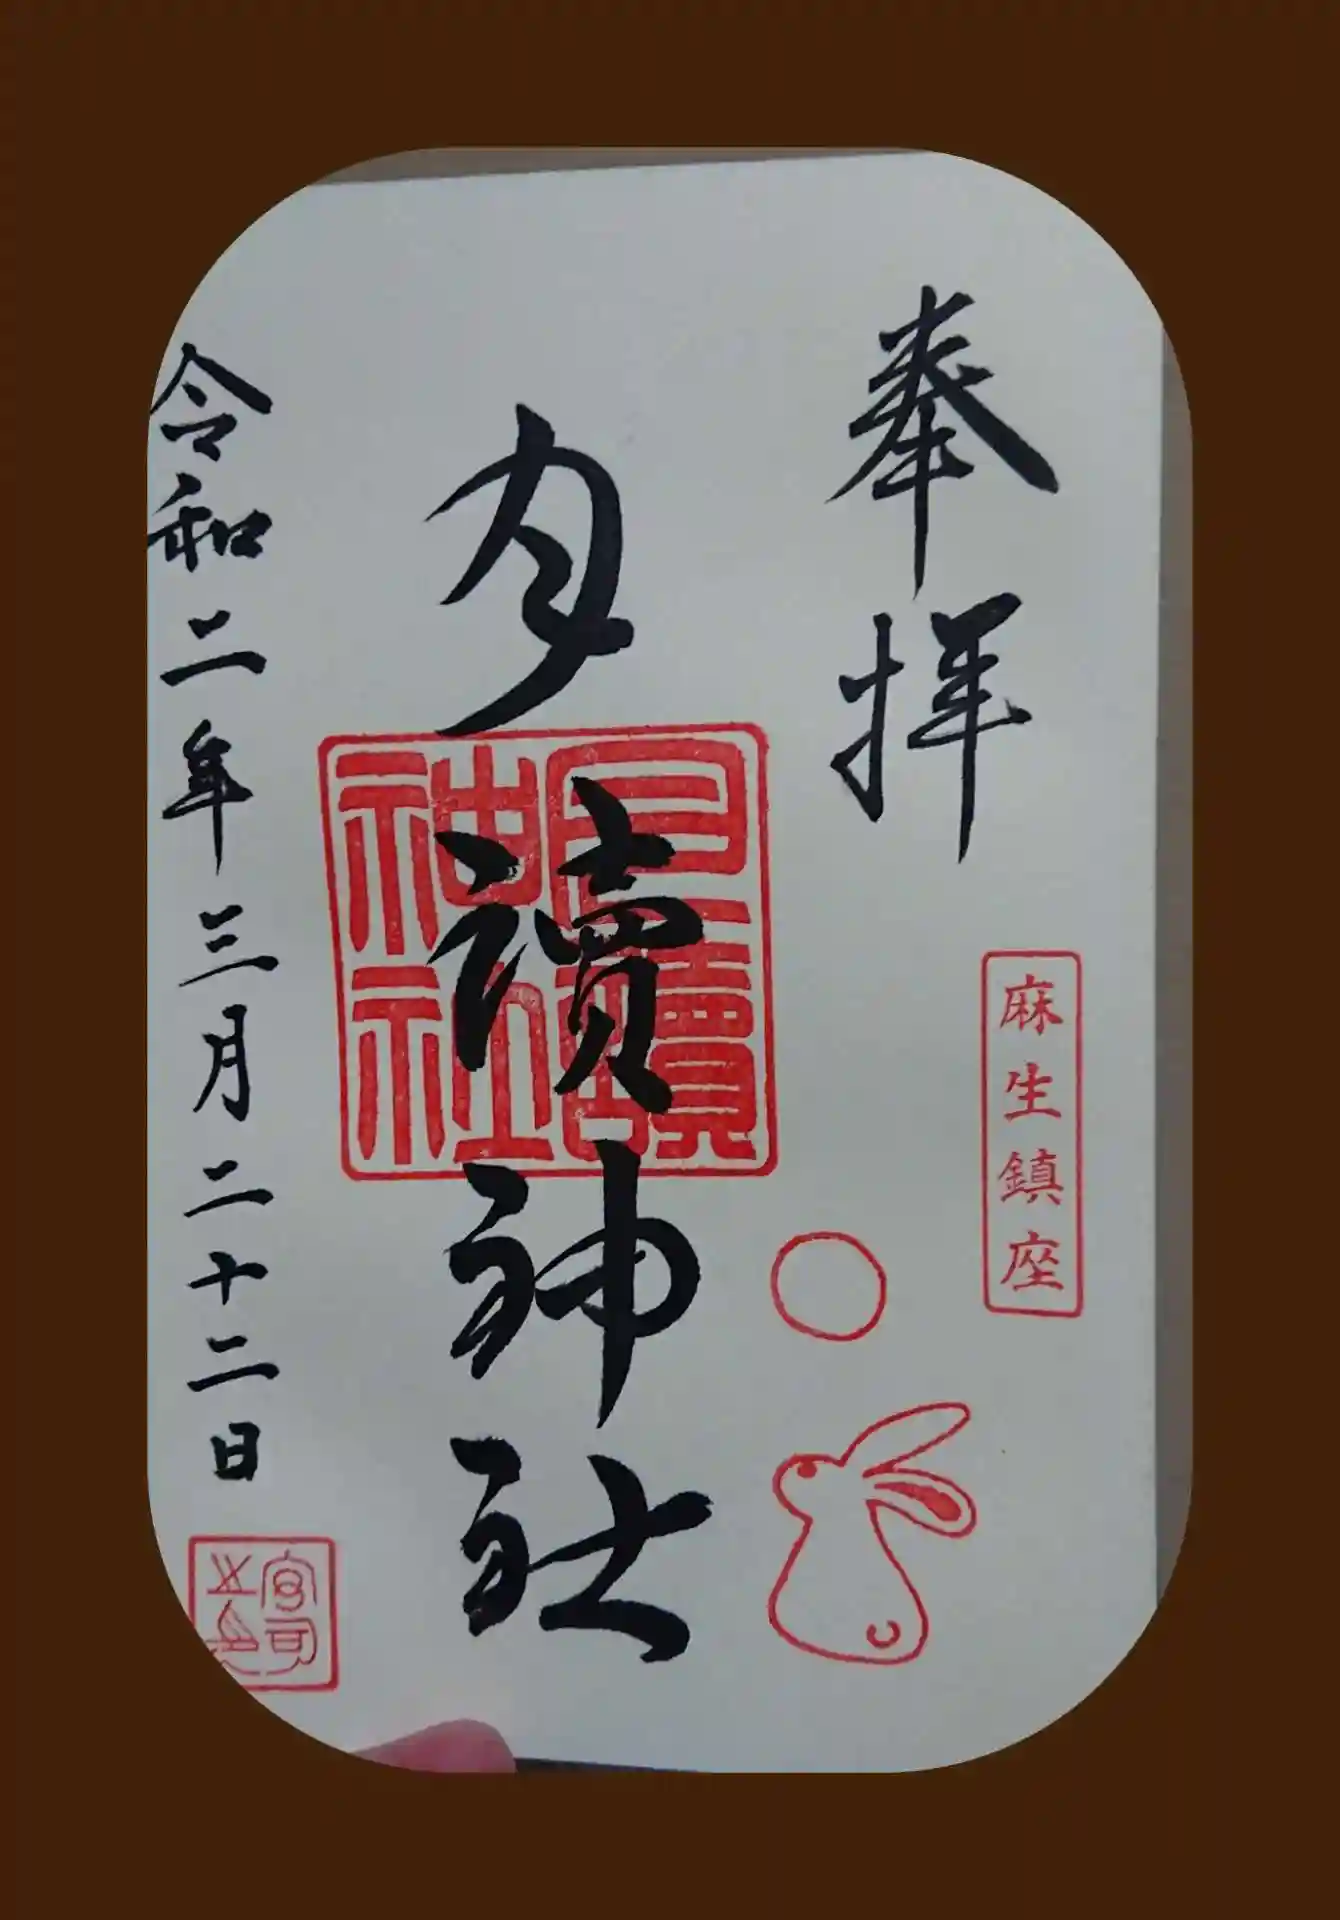 奉拝
麻生鎮座
月讀神社
月讀神社
令和二年三月二十二日
宮司之印